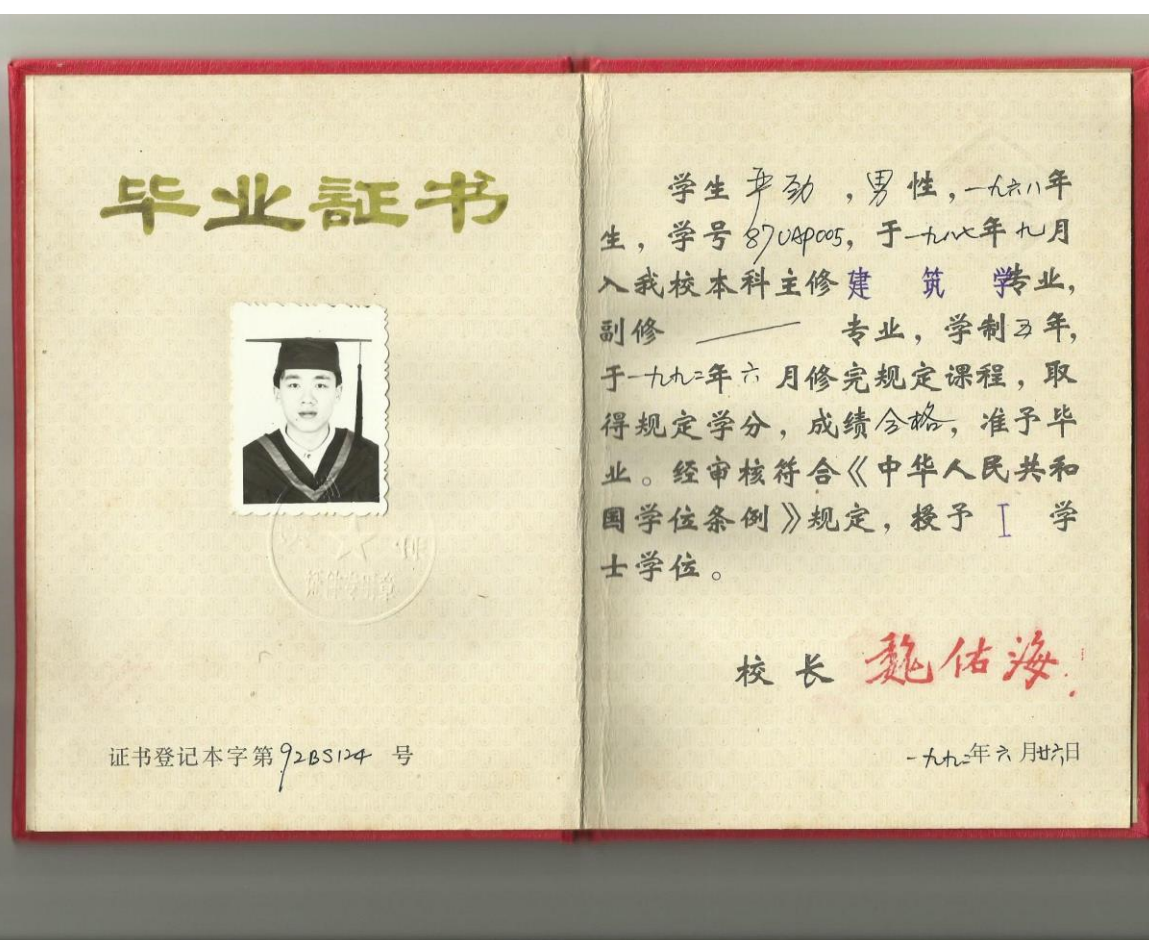 毕业証书
证书登记本字第92BS124号
学生严劲,男性,一九六八年
生,学号87UAP005,于一九八七年九月
入我校本科主修建筑学专业,
副修——专业,学制五年,
于一九九二年六月修完规定课程,取
得规定学分,成绩合格,准予毕
业。经审核符合《中华人民共和
国学位条例》规定,授予工学
士学位。
校长 魏佑海
一九九二年六月廿六日